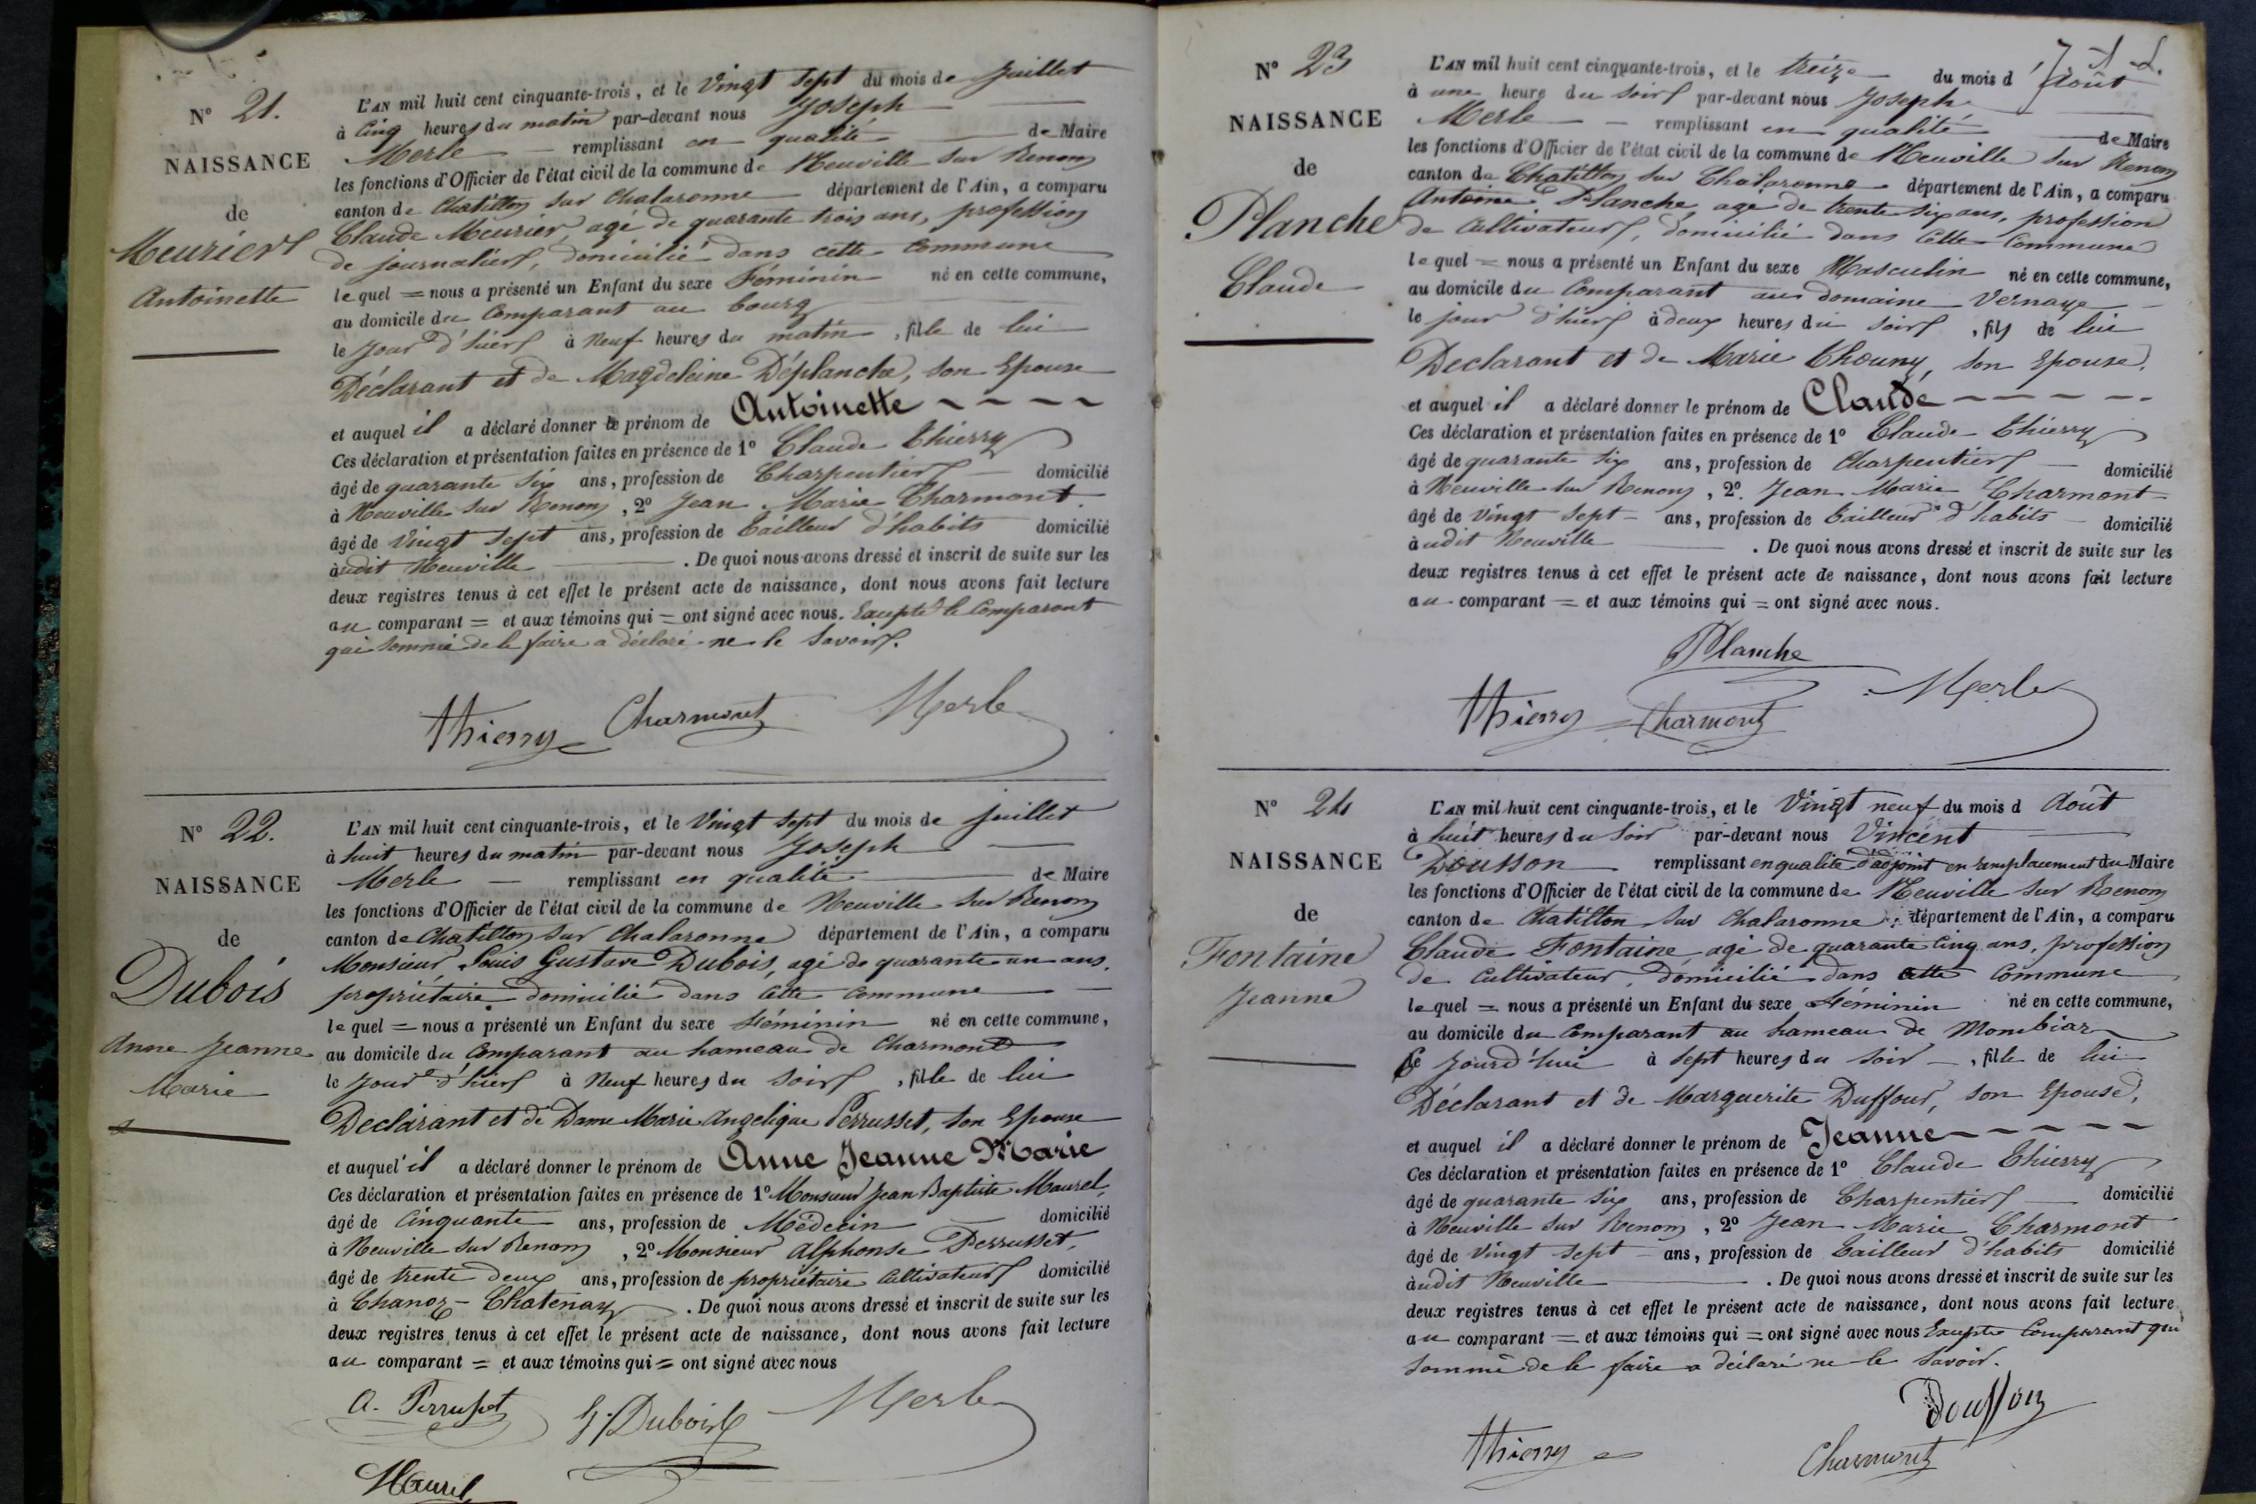 N° 21.
NAISSANCE
de
Meurier
Antoinette
L'AN mil huit cent cinquante-trois, et le Vingt Sept du mois de Juillet
à Cinq heures du matin par-devant nous Joseph
Merle remplissant en qualité de Maire
les fonctions d'Officier de l'état civil de la commune de Neuville sur Renom
canton de Chatillon sur Chalaronne département de l'Ain, a comparu
Claude Meurier, agé de quarante trois ans, profession
de journalier, domicilié dans cette Commune
lequel = nous a présenté un Enfant du sexe Féminin né en cette commune,
au domicile du Comparant au bourg
le Jour d'hier à Neuf heures du matin, fille de lui
Déclarant et de Magdeleine Déplanche, son Epouse
et auquel il a déclaré donner le prénom de Antoinette
Ces déclaration et présentation faites en présence de 1° Claude Thierry
âgé de quarante Six ans, profession de Charpentier domicilié
à Neuville sur Renom, 2° Jean Marie Charmont
âgé de Vingt Sept ans, profession de Tailleur d'habits domicilié
àudit Neuville. De quoi nous avons dressé et inscrit de suite sur les
deux registres tenus à cet effet le présent acte de naissance, dont nous avons fait lecture
au comparant = et aux témoins qui = ont signé avec nous. Excepté le Comparant
qui Sommé de le faire a déclaré ne le Savoir.
Thierry Charmont Merle
N° 22.
NAISSANCE
de
Dubois
Anne Jeanne
Marie
L'AN mil huit cent cinquante-trois, et le Vingt Sept du mois de Juillet
à huit heures du matin par-devant nous Joseph
Merle remplissant en qualité de Maire
les fonctions d'Officier de l'état civil de la commune de Neuville sur Renom
canton de Chatillon sur Chalaronne département de l'Ain, a comparu
Monsieur Louis Gustave Dubois, agé de quarante un ans,
propriétaire domicilié dans cette Commune
lequel = nous a présenté un Enfant du sexe Féminin né en cette commune,
au domicile du Comparant au hameau de Charmont
le Jour d'hier à Neuf heures du Soir, fille de lui
Declarant et de Dame Marie Angelique Perrusset, son Epouse
et auquel il a déclaré donner le prénom de Anne Jeanne Marie
Ces déclaration et présentation faites en présence de 1° Monsieur Jean Baptiste Maurel,
âgé de Cinquante ans, profession de Médecin domicilié
à Neuville sur Renom, 2° Monsieur Alphonse Perrusset,
âgé de trente deux ans, profession de propriétaire Cultivateur domicilié
à Chanoz-Chatenay. De quoi nous avons dressé et inscrit de suite sur les
deux registres tenus à cet effet le présent acte de naissance, dont nous avons fait lecture
au comparant = et aux témoins qui = ont signé avec nous
A. Perrusset G. Dubois Merle
Maurel
N° 23
NAISSANCE
de
Planche
Claude
L'AN mil huit cent cinquante-trois, et le treize du mois d'Août
à une heure du Soir par-devant nous Joseph
Merle remplissant en qualité de Maire
les fonctions d'Officier de l'état civil de la commune de Neuville sur Renom
canton de Chatillon sur Chalaronne département de l'Ain, a comparu
Antoine Planche, agé de trente Six ans, profession
de Cultivateur, domicilié dans cette Commune
lequel = nous a présenté un Enfant du sexe Masculin né en cette commune,
au domicile du Comparant au domaine Vernaye
le jour d'hier à deux heures du Soir, fils de lui
Declarant et de Marie Chouny, son Epouse.
et auquel il a déclaré donner le prénom de Claude
Ces déclaration et présentation faites en présence de 1° Claude Thierry
âgé de quarante Six ans, profession de Charpentier domicilié
à Neuville sur Renom, 2° Jean Marie Charmont
âgé de Vingt Sept ans, profession de Tailleur d'habits domicilié
àudit Neuville. De quoi nous avons dressé et inscrit de suite sur les
deux registres tenus à cet effet le présent acte de naissance, dont nous avons fait lecture
au comparant = et aux témoins qui = ont signé avec nous.
Planche
Thierry Charmont Merle
N° 24
NAISSANCE
de
Fontaine
Jeanne
L'AN mil huit cent cinquante-trois, et le Vingt neuf du mois d Août
à huit heures du Soir par-devant nous Vincent
Dousson remplissant en qualité d'adjoint en remplacement du Maire
les fonctions d'Officier de l'état civil de la commune de Neuville sur Renom
canton de Chatillon sur Chalaronne département de l'Ain, a comparu
Claude Fontaine, agé de quarante Cinq ans, profession
de Cultivateur, domicilié dans cette Commune
lequel = nous a présenté un Enfant du sexe Féminin né en cette commune,
au domicile du Comparant au hameau de Mombiar
Ce Jourd'hui à Sept heures du Soir, fille de lui
Déclarant et de Marguerite Duffour, son Epouse,
et auquel il a déclaré donner le prénom de Jeanne
Ces déclaration et présentation faites en présence de 1° Claude Thierry
âgé de quarante Six ans, profession de Charpentier domicilié
à Neuville sur Renom, 2° Jean Marie Charmont
âgé de Vingt Sept ans, profession de Tailleur d'habits domicilié
àudit Neuville. De quoi nous avons dressé et inscrit de suite sur les
deux registres tenus à cet effet le présent acte de naissance, dont nous avons fait lecture
au comparant = et aux témoins qui = ont signé avec nous Excepté Comparant qui
Sommé de le faire a déclaré ne le Savoir.
Dousson
Thierry Charmont